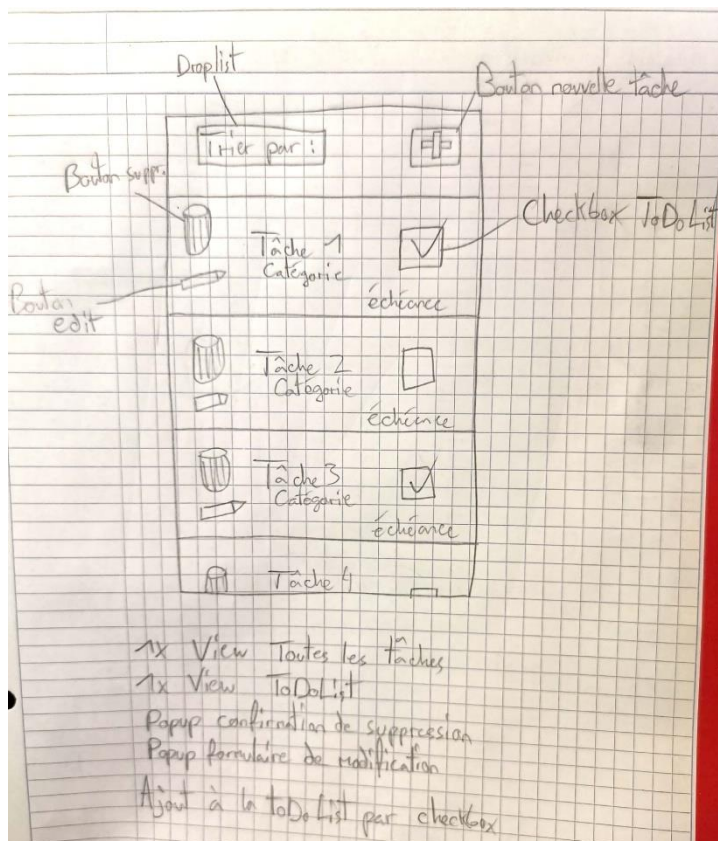 Droplist
Bouton nouvelle tâche
Trier par :
Bouton suppr.
Checkbox ToDoList
Tâche 1
Catégorie
échéance
Bouton edit
Tâche 2
Catégorie
échéance
Tâche 3
Catégorie
échéance
Tâche 4
1x View Toutes les tâches
1x View ToDoList
Popup confirmation de suppression
Popup formulaire de modification
Ajout à la toDoList par checkbox